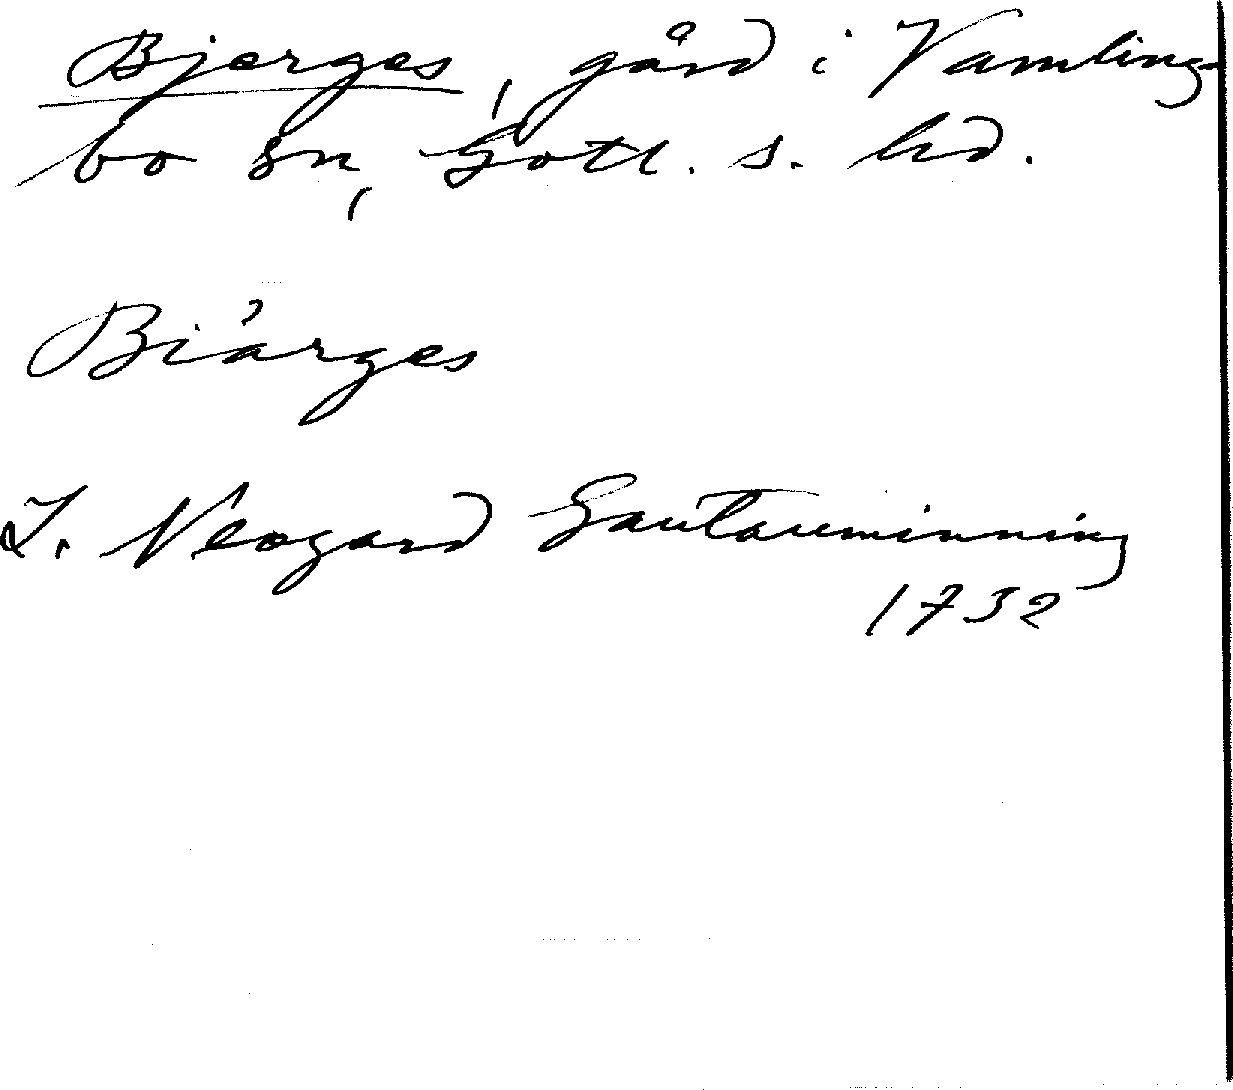 Bjerges, gård i Vamlingo
bo sn, Gotl. s. hd.
Biårges
J. Neogard Gautauminning
1732